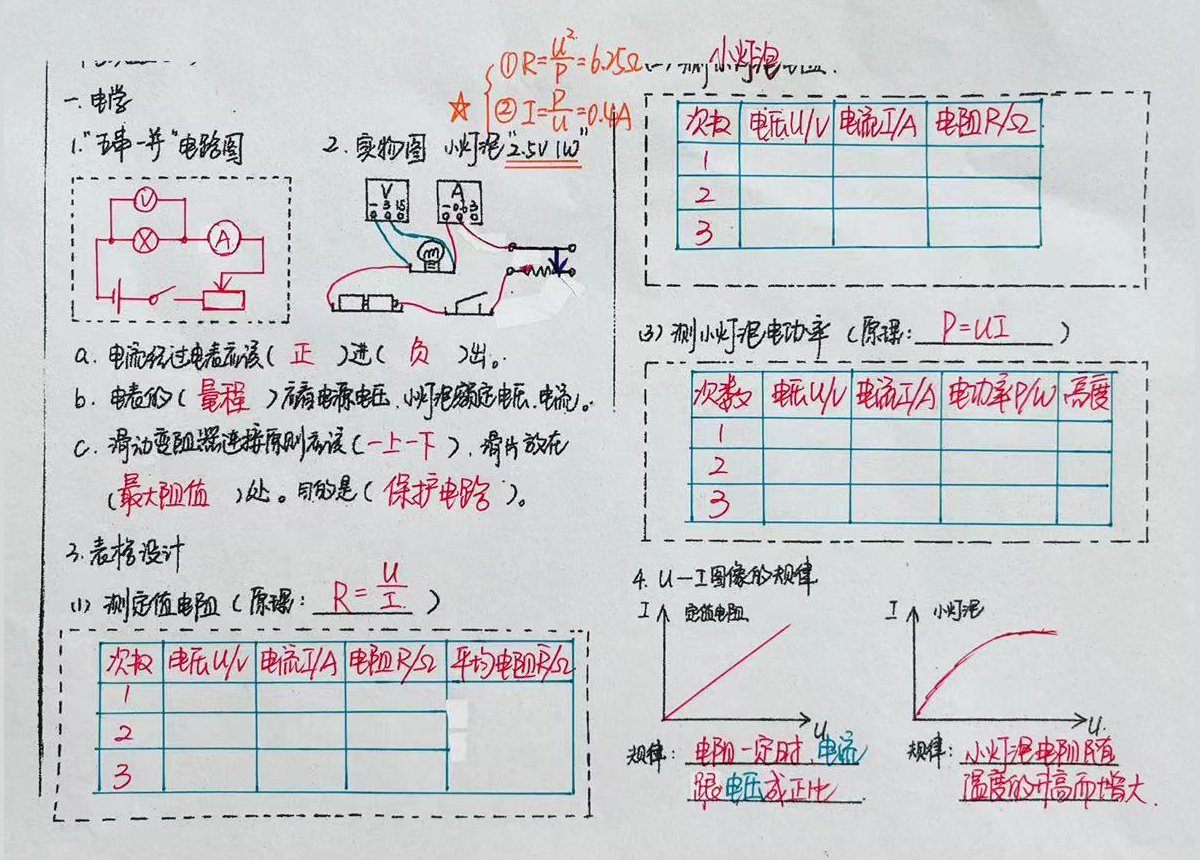 一.电学
1."五串一并"电路图
V
A
2.实物图 小灯泡"2.5V 1W"
☆ ①R=U²/P=6.25Ω
②I=P/U=0.4A
V
- 3 15
A
- 0.6 3
a.电流经过电表应该( 正 )进( 负 )出。
b.电表的( 量程 )看电源电压、小灯泡额定电压、电流。
c.滑动变阻器连接原则应该(一上一下),滑片放在
(最大阻值 )处。目的是( 保护电路 )。
3.表格设计
(1)测定值电阻(原理: R=U/I )
次数 电压U/V 电流I/A 电阻R/Ω 平均电阻R/Ω
1
2
3
小灯泡
次数 电压U/V 电流I/A 电阻R/Ω
1
2
3
(3)测小灯泡电功率(原理: P=UI )
次数 电压U/V 电流I/A 电功率P/W 亮度
1
2
3
4.U-I图像的规律
I 定值电阻
U
规律: 电阻一定时,电流
跟电压成正比
I 小灯泡
U
规律: 小灯泡电阻随
温度的升高而增大.